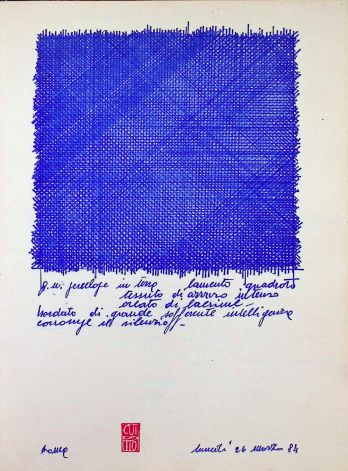 in lamento quadrato
tessuto di azzurro intenso
orlato di lacrime
bordato di grande sofferente intelligenza
corrompe il silenzio
Roma
lunedì 26 marzo 84